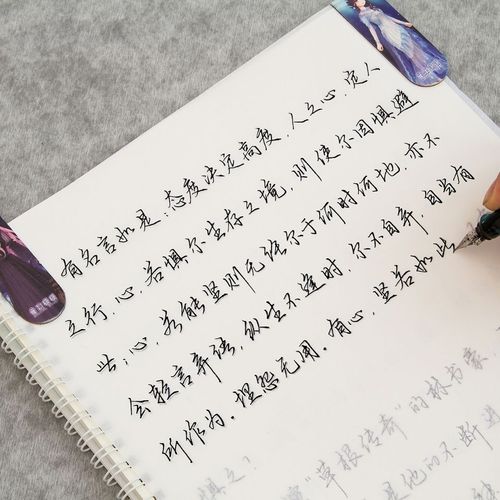 有名言如是:态度决定高度,人之心,定人
之行,心,若惧尔生存之境,则使尔因惧避
此;心,若能坚则无论尔于何时何地,亦不
会轻言弃语,纵生不逢时,尔不自弃,自当有
所作为。埋怨无用。有心,坚若如此
惧之!
"草根传奇"的板书
是他的不断